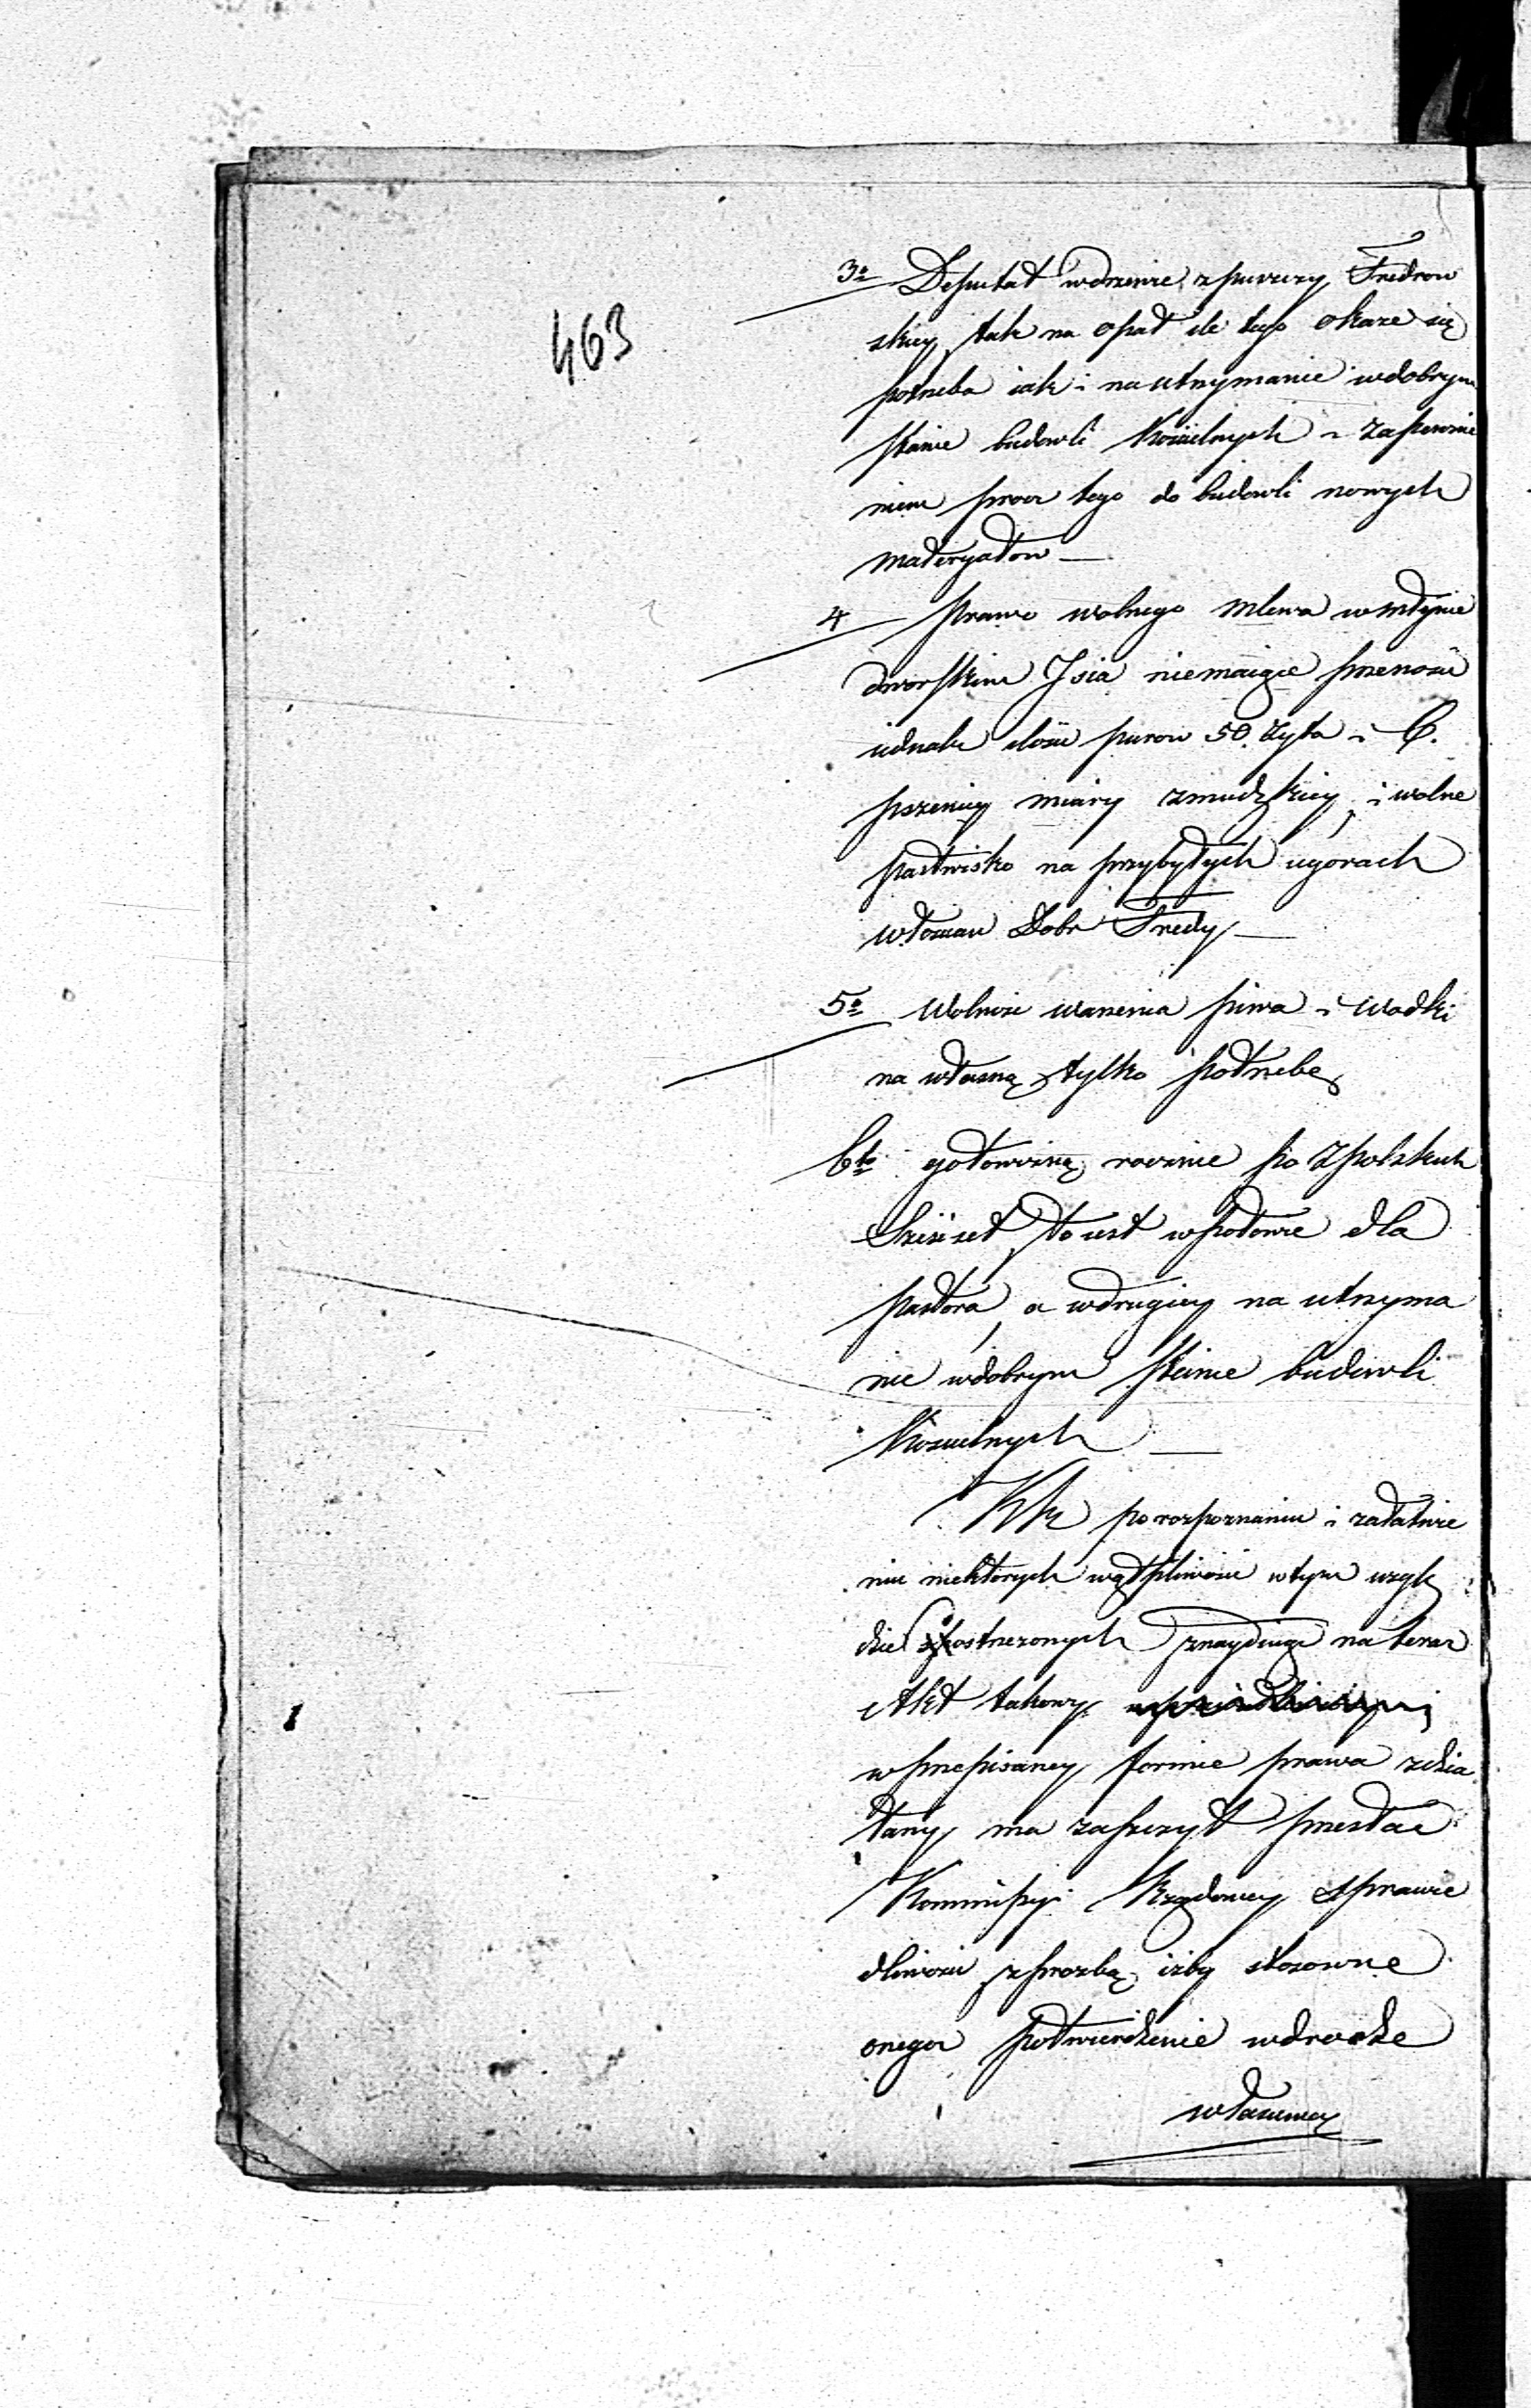 463
3o Deputat wdrzewie z puszczy Fredrow
skiey, tak na opał ile tego okaze się
potrzeba iak i na utrzymanie wdobrym
stanie budowli Kościelnych i zapewnie
niem procz tego do budowli nowych
materyałow —
4 prawo wolnego mlewa wmłynie
dworskim Jsia niemaiące przenosić
iednak ilości purow 50. żyta i 6.
pszenicy miary zmudzkiey, i wolne
pastwisko na przybyłych ugorach
włościan Dobr Fredy —
5o Wolność warzenia piwa i wodki
na własną tylko potrzebę
6to gotowizną rocznie po Zpolskich
sześćset to iest wpołowie dla
pastora, a wdrugiey na utrzyma
nie wdobrym stanie budowli
Kościelnych —
KW po rozpoznaniu i załatwie
niu niektorych wątpliwości wtym wzglę
dzie postrzezonych znayduiąc na teraz
Akt takowy
wprzepisaney formie prawa zdzia
łany, ma zaszczyt przesłać
Kommissyi Rządowey Sprawie
dliwości z prozbą, iżby stosowne
onego potwierdzenie wdrodze
własciwey